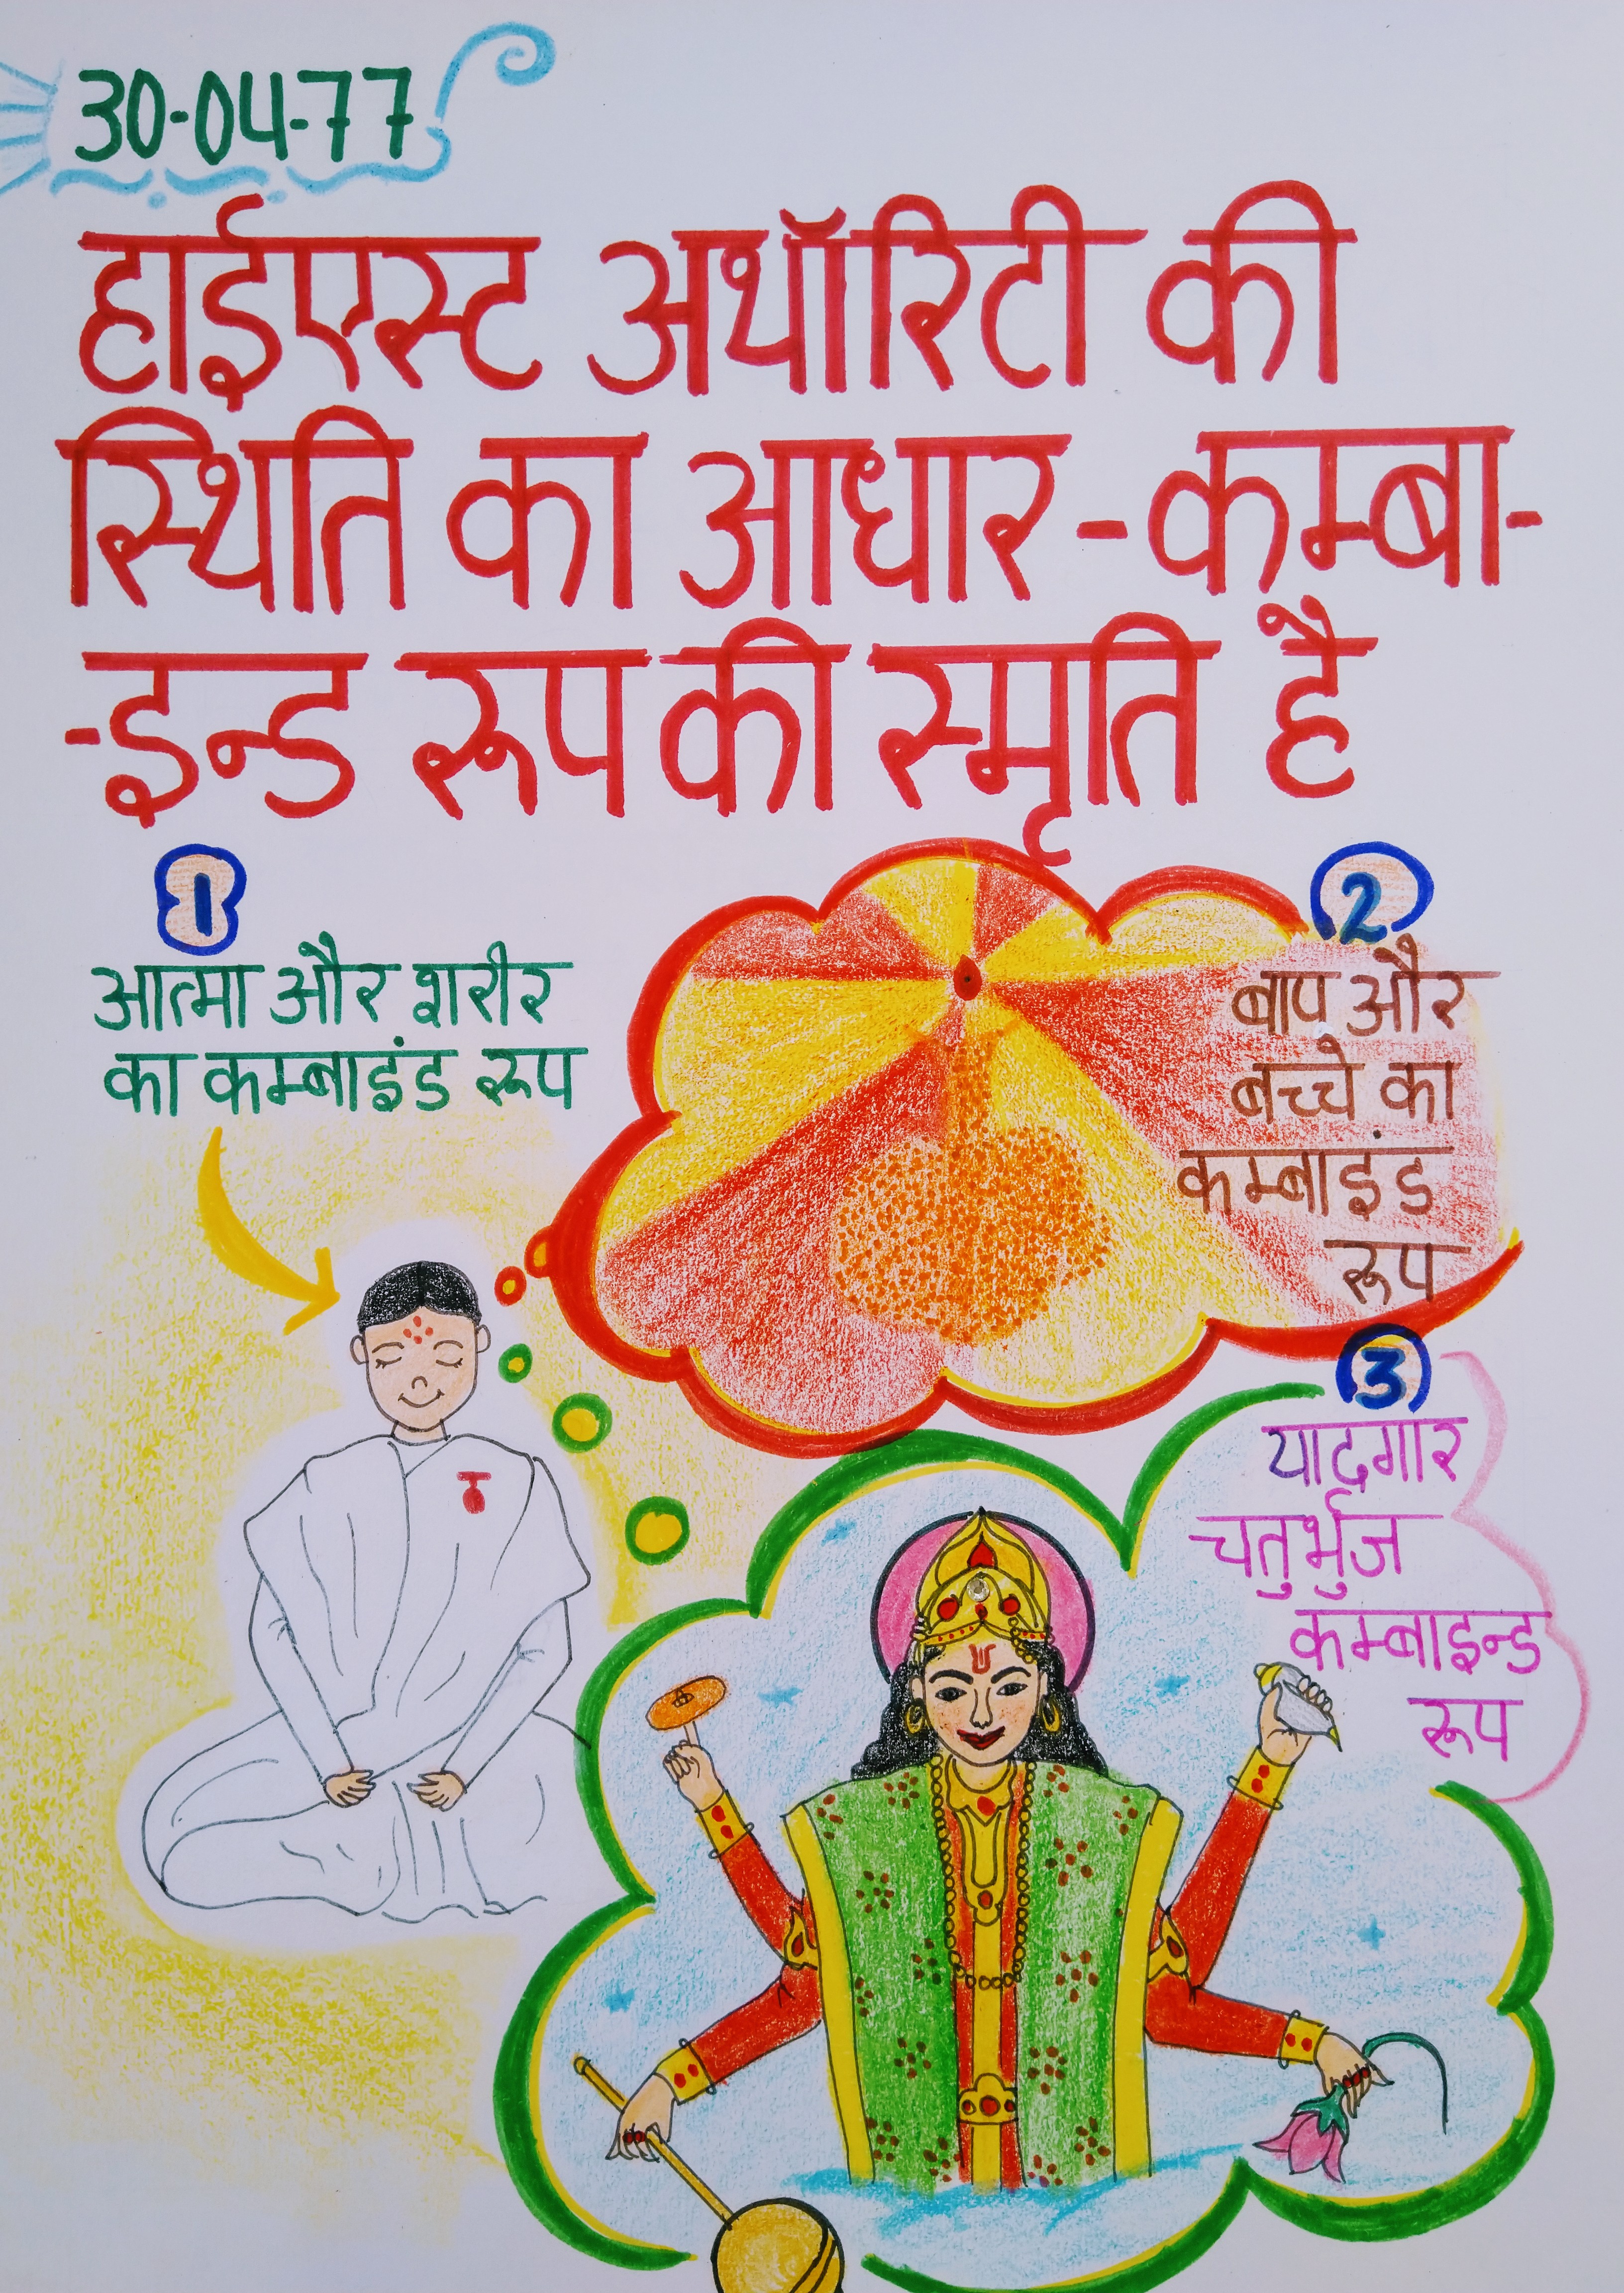 30-04-77
हाईएस्ट अथॉरिटी की
स्थिति का आधार - कम्बा-
-इन्ड रूप की स्मृति है
1
आत्मा और शरीर
का कम्बाइंड रूप
2
बाप और
बच्चे का
कम्बाइंड
रूप
3
यादगार
चतुर्भुज
कम्बाइन्ड
रूप